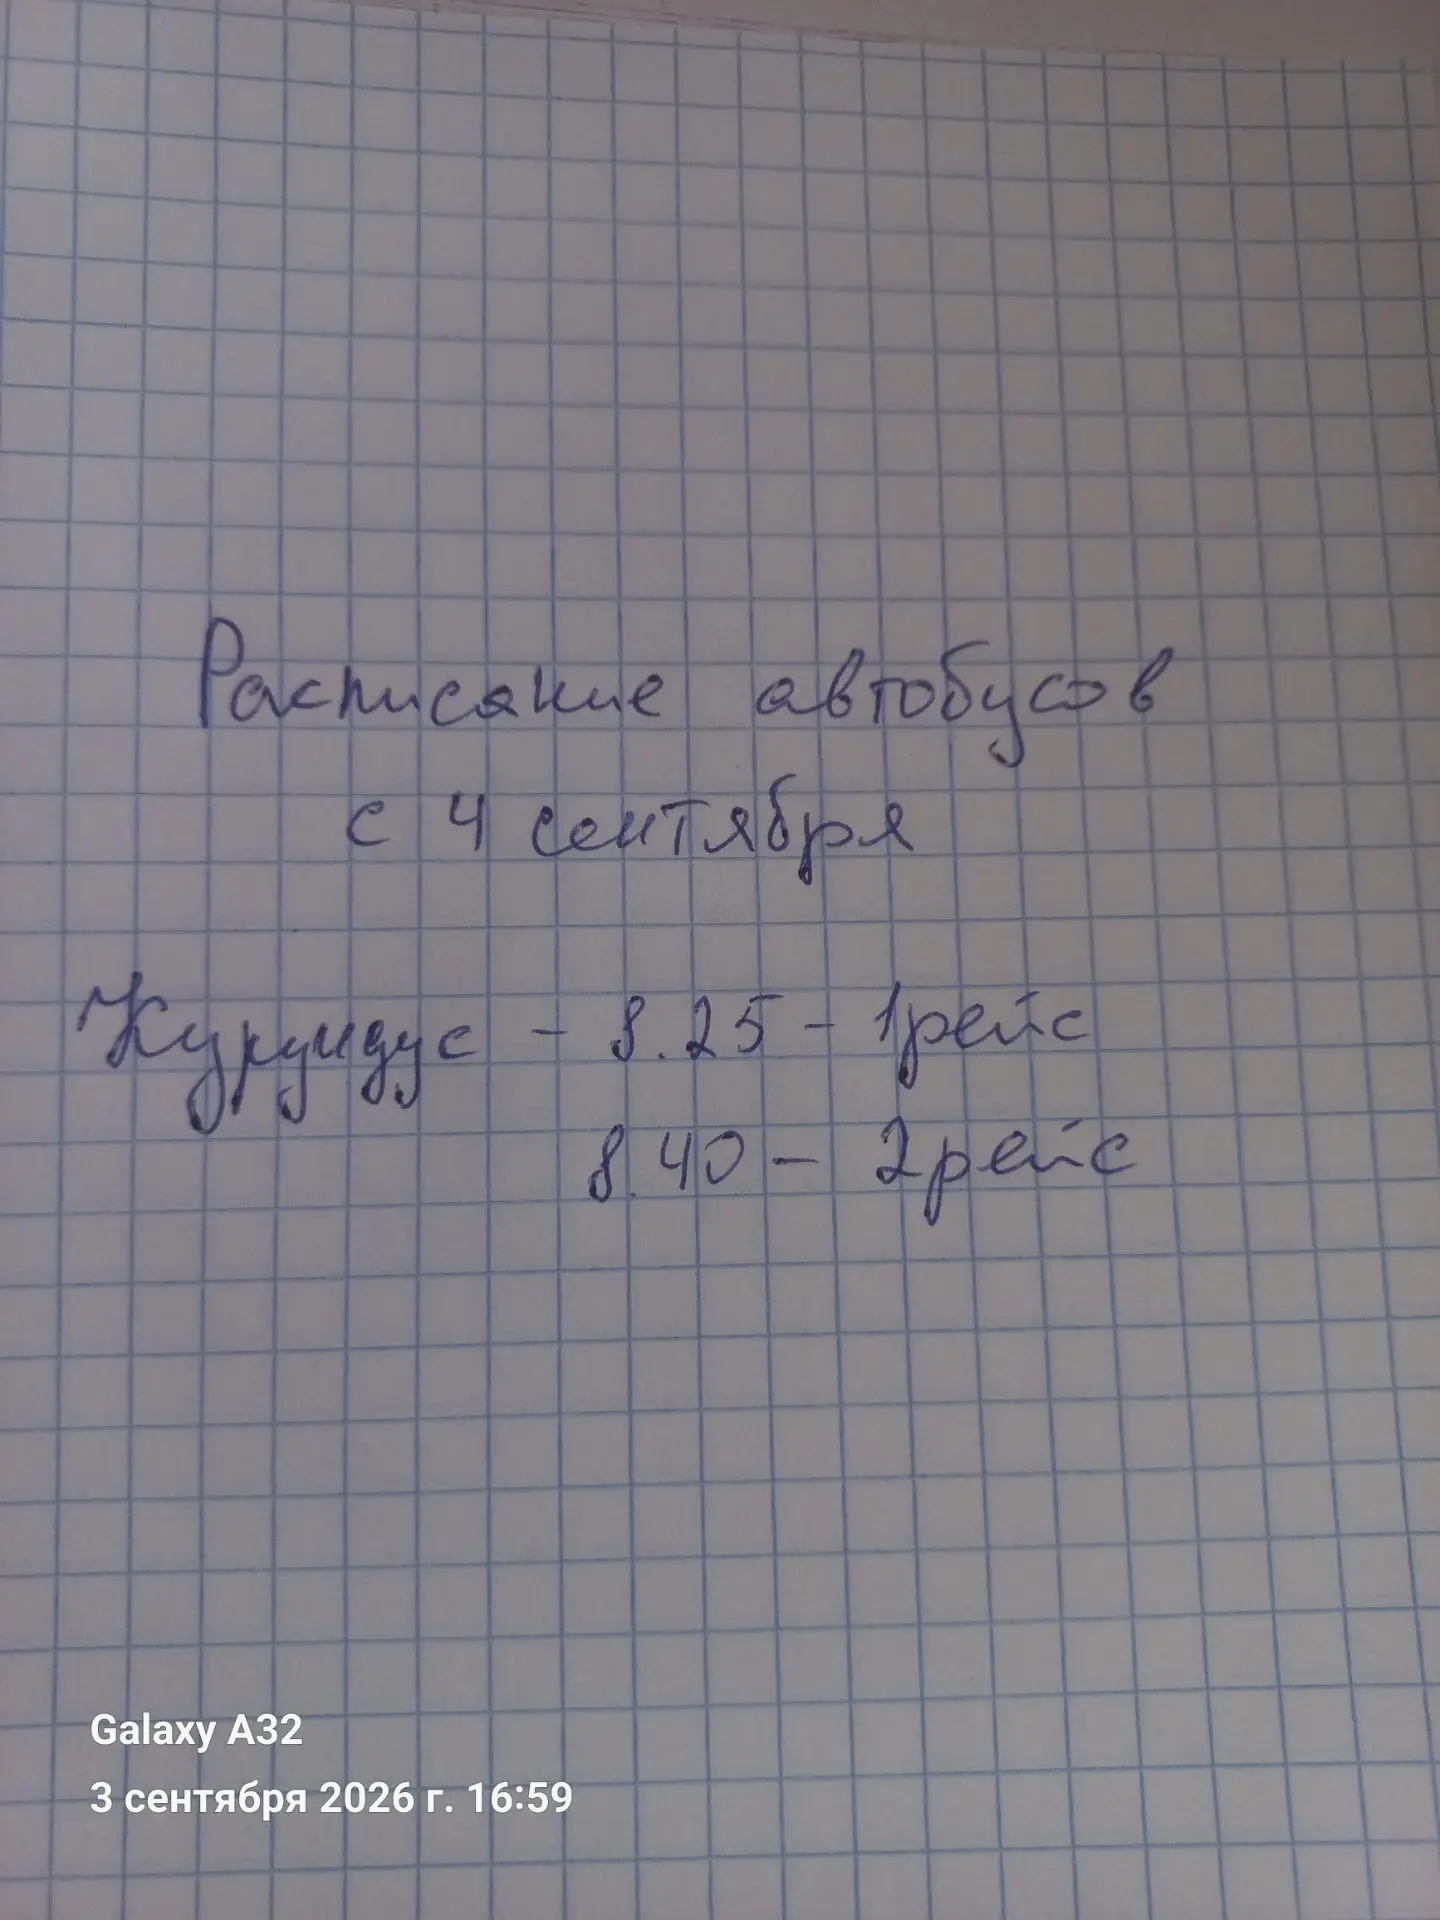 Расписание автобусов
с 4 сентября
Курундус - 8.25 - 1 рейс
8.40 - 2 рейс
Galaxy A32
3 сентября 2026 г. 16:59